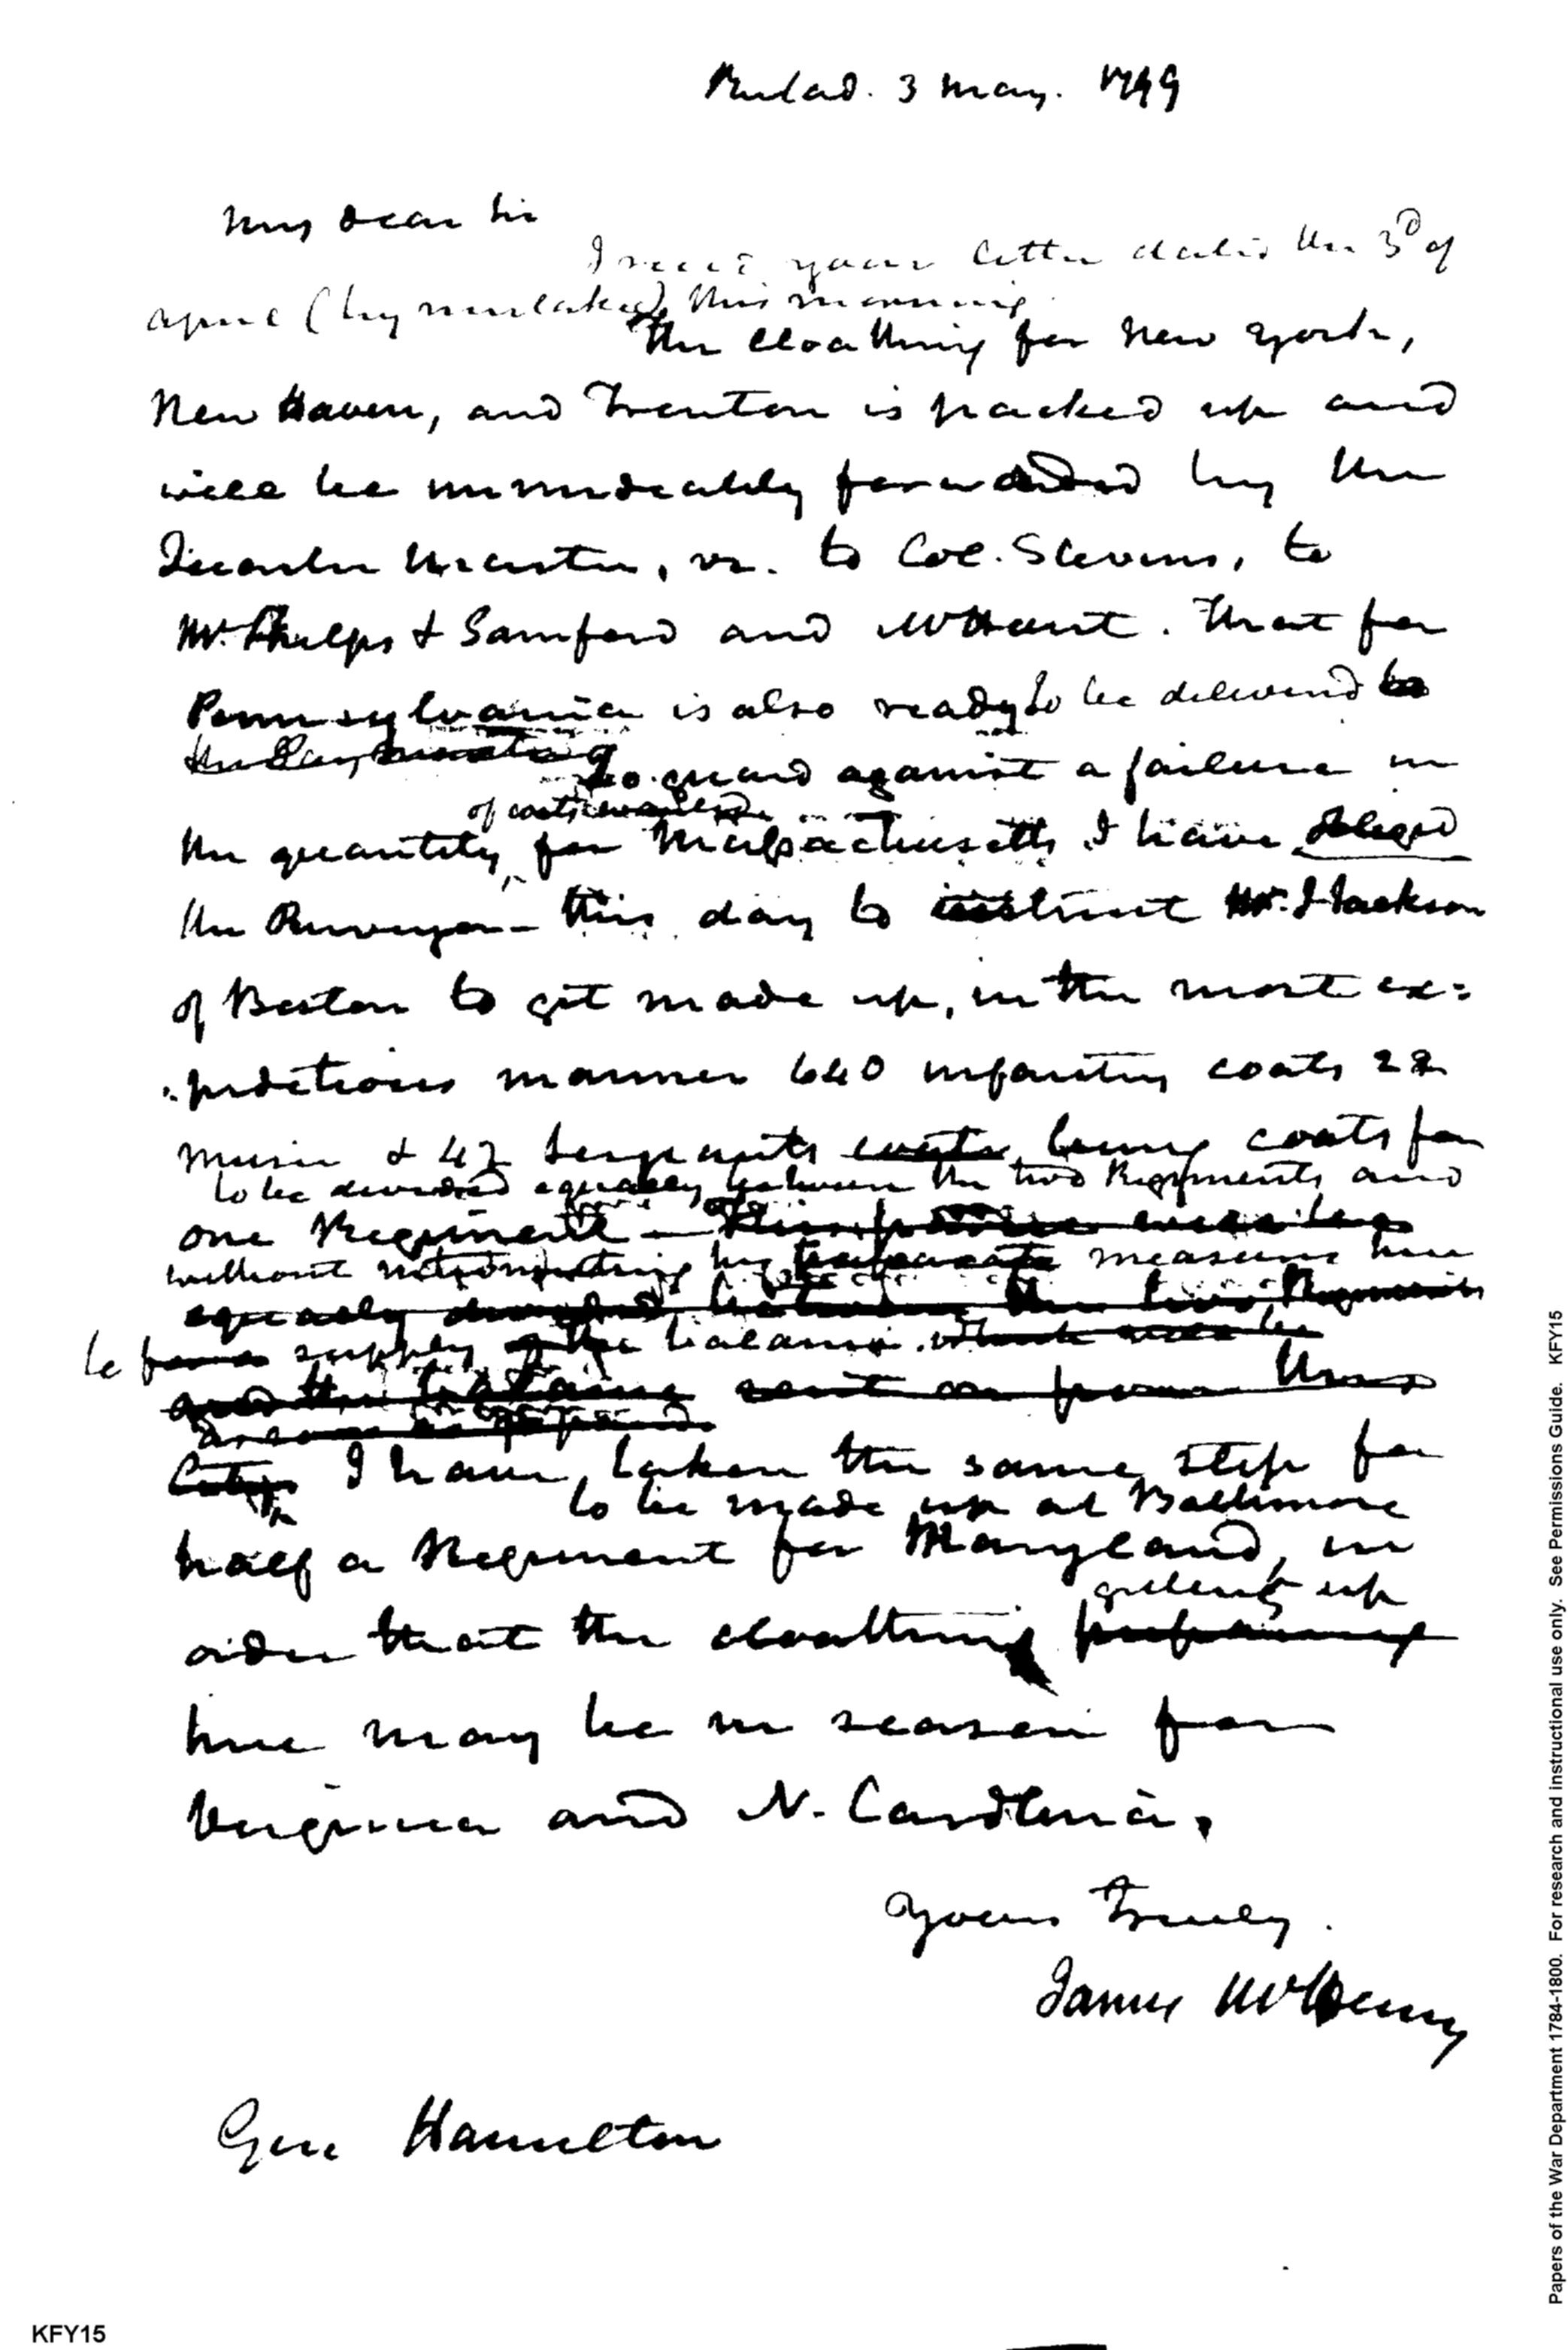 Philad. 3 May. 1799
My dear Sir
I rece'd your letter dated the 3d of
april (by mistake) this morning.
The cloathing for New York,
New Haven, and Trenton is packed up and
will be immediately forwarded by the
Quarter Master, vz. to Col. Stevens, to
Mr. Phelps & Samford and Mr Hunt. That for
Pennsylvania is also ready to be delivered to
the
To guard against a failure in
of coats
the quantity, for Massachusetts I have obliged
the Purveyor this day to instruct Mr. J Jackson
of Boston to get made up, in the most ex=
=peditious manner 640 infantry coats 22
music & 42 Sergeants coats being coats for
to be divided equally between the two Regiments and
one Regiment
without by measures here
equally divided between the two Regiments
to supply the balance. which will be
and the balance sent on from this
City I have, taken the same step for
to be made up at Baltimore
half a Regiment for Maryland, in
getting up
order that the cloathing preparing
here may be in season for
Virginia and N. Carolina.
Yours truly.
James McHenry
Gen Hamilton
Papers of the War Department 1784-1800. For research and instructional use only. See Permissions Guide. KFY15
KFY15